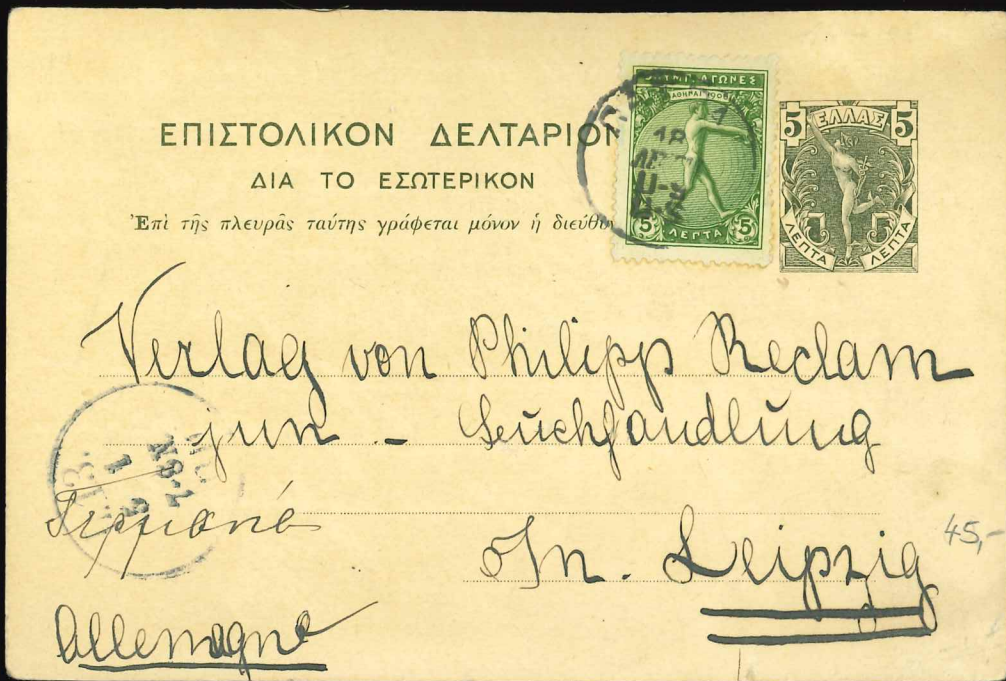 ΕΠΙΣΤΟΛΙΚΟΝ ΔΕΛΤΑΡΙΟΝ
ΔΙΑ ΤΟ ΕΣΩΤΕΡΙΚΟΝ
Ἐπὶ τῆς πλευρᾶς ταύτης γράφεται μόνον ἡ
ΑΓΩΝΕΣ
5 ΛΕΠΤΑ 5
5 ΕΛΛΑΣ 5
ΛΕΠΤΑ ΛΕΠΤΑ
Verlag von Philipp Reclam
jun - Buchhandlung
In. Leipzig
45,-
Allemagne